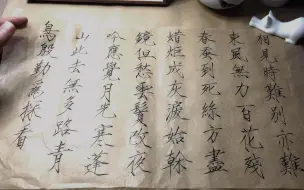 相見時難別亦難
東風無力百花殘
春蚕到死絲方盡
焟炬成灰淚始幹
鏡但愁雲鬢改夜
吟應覺月光寒蓬
山此去無多路青
鳥殷勤為探看